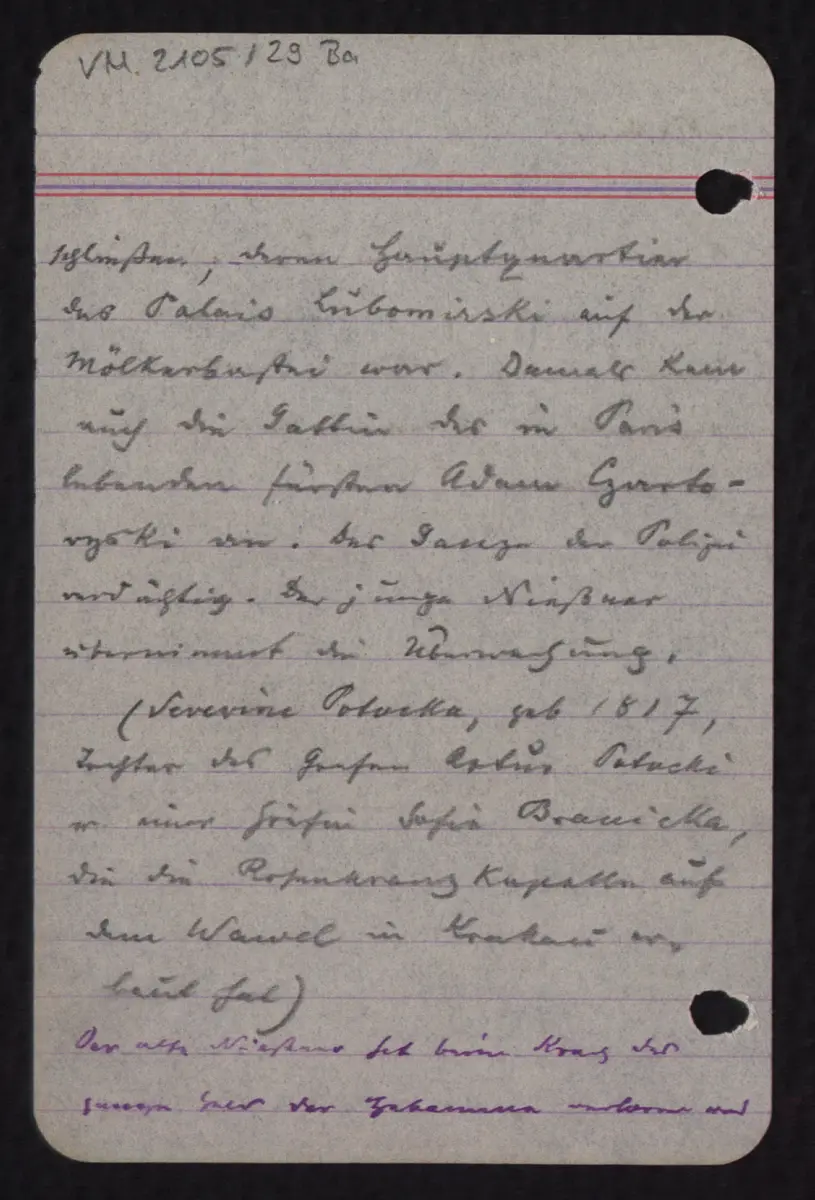 VM. 2105 / 29 Ba
schließen, deren Hauptquartier
das Palais Lubomirski auf der
Mölkerbastei war. Damals kam
auch die Gattin des in Paris
lebenden Fürsten Adam Czarto-
ryski an. Das Ganze der Polizei
verdächtig. Der junge Nießner
übernimmt die Überwachung.
(Severine Potocka, geb 1817,
Tochter des Grafen Artur Potocki
u. einer Gräfin Sofie Branicka,
die die Rosenkranzkapelle auf
dem Wawel in Krakau er-
baut hat)
Der alte Nießner hat beim Krach das
ganze Geld der verloren und